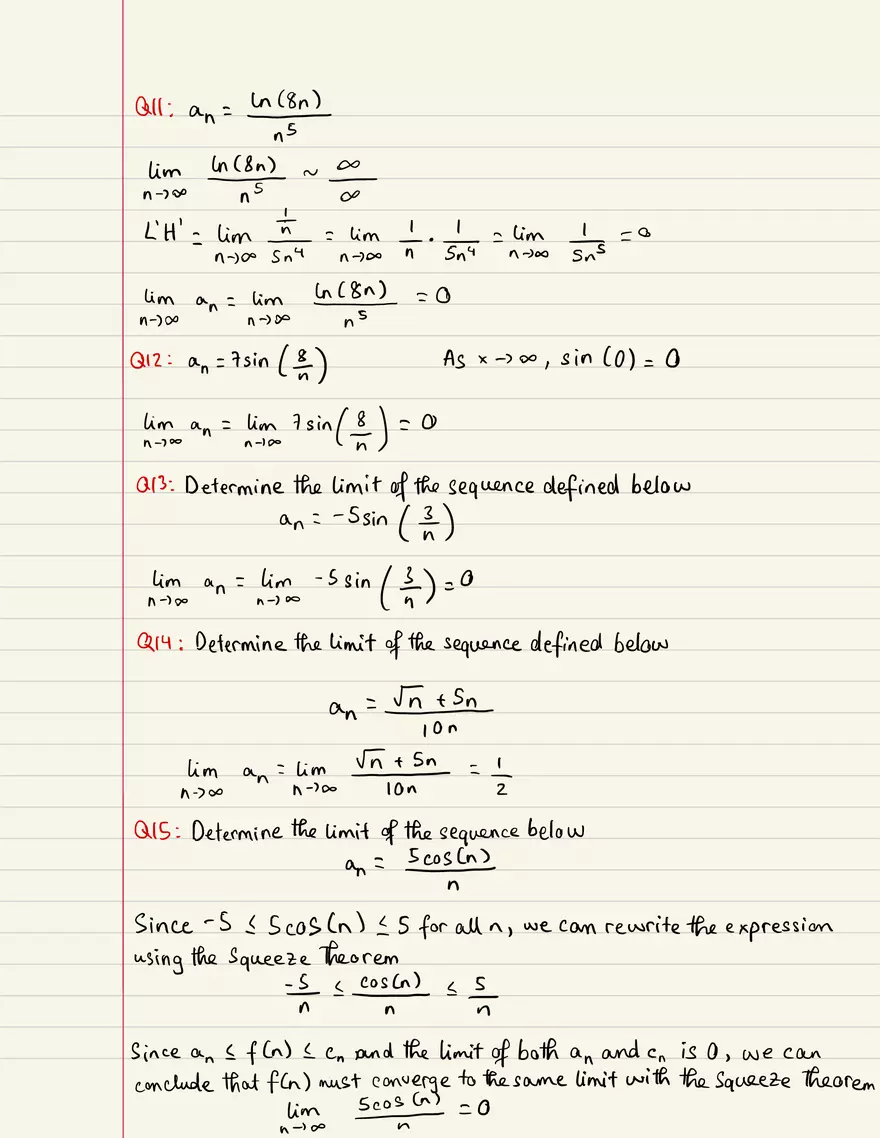 Q11: aₙ = ln(8n)/n⁵
lim n→∞ ln(8n)/n⁵ ~ ∞/∞
L'H' = lim n→∞ (1/n)/5n⁴ = lim n→∞ 1/n · 1/5n⁴ = lim n→∞ 1/5n⁵ = 0
lim n→∞ aₙ = lim n→∞ ln(8n)/n⁵ = 0
Q12: aₙ = 7sin(8/n) As x→∞, sin(0) = 0
lim n→∞ aₙ = lim n→∞ 7sin(8/n) = 0
Q13: Determine the limit of the sequence defined below
aₙ = -5sin(3/n)
lim n→∞ aₙ = lim n→∞ -5sin(3/n) = 0
Q14: Determine the limit of the sequence defined below
aₙ = (√n + 5n)/10n
lim n→∞ aₙ = lim n→∞ (√n + 5n)/10n = 1/2
Q15: Determine the limit of the sequence below
aₙ = 5cos(n)/n
Since -5 ≤ 5cos(n) ≤ 5 for all n, we can rewrite the expression
using the Squeeze Theorem
-5/n ≤ cos(n)/n ≤ 5/n
Since aₙ ≤ f(n) ≤ cₙ and the limit of both aₙ and cₙ is 0, we can
conclude that f(n) must converge to the same limit with the Squeeze Theorem
lim n→∞ 5cos(n)/n = 0